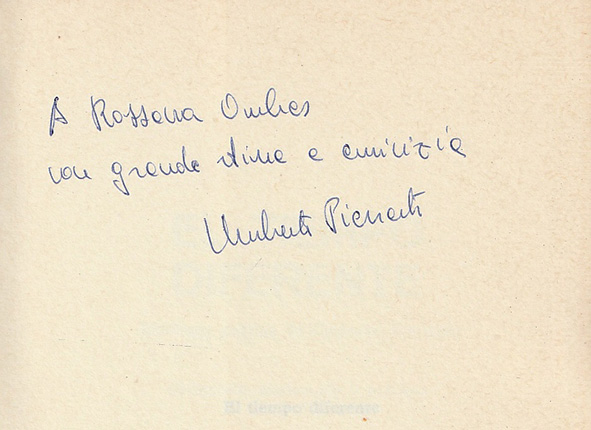 A Rossana Ombres
con grande stima e amicizia
Umberto Piersanti
El tiempo diferente